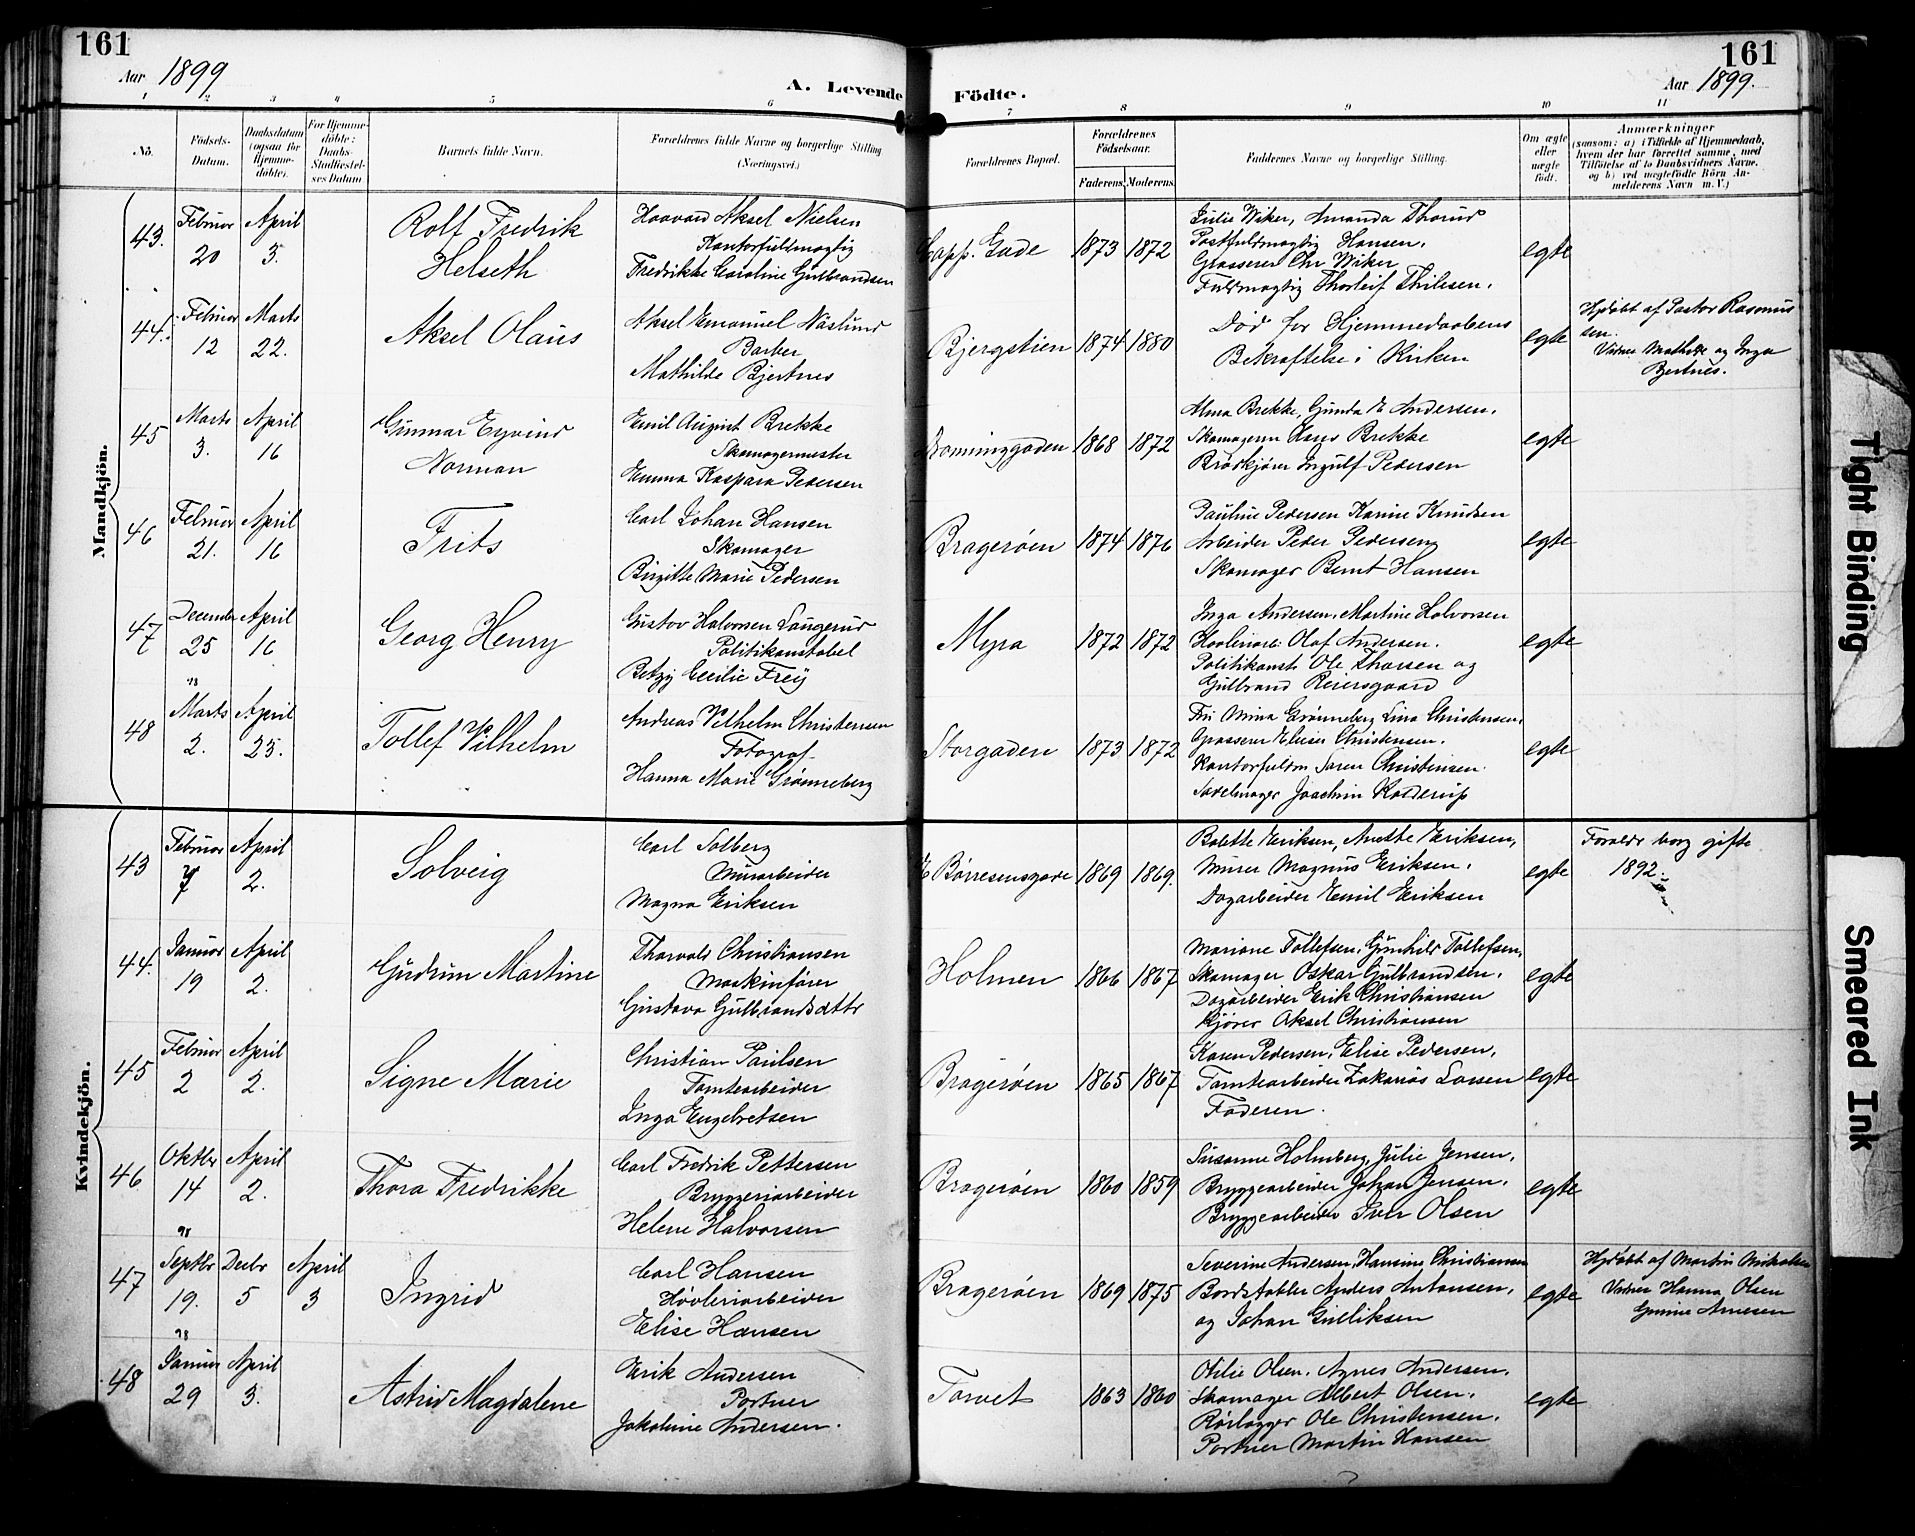 161
Aar 1899
A. Levende
Födte.
161
Aar 1899.
1 2 3 4 5 6 7 8 9 10 11
No.
Födsels-
Datum.
Daabsdatum
(ogsaa for
Hjemme-
döbte).
For Hjemme-
döbte:
Daabs-
Stadfæstel-
ses Datum
Barnets fulde Navn.
Forældrenes fulde Navne og borgerlige Stilling
(Næringsvei.)
Forældrenes Bopæl.
Forældrenes
Födselsaar.
Faderens. Moderens.
Faddernes Navne og borgerlige Stilling.
Om ægte
eller
uægte
födt.
Anmærkninger
(saasom: a) i Tilfælde af Hjemmedaab,
hvem der har forrettet samme, med
Tilföielse af to Daabsvidners Navne,
og b) ved uægtefödte Börn An-
melderens Navn m. V.)
Mandkjön.
43.
Februar
20
April
3.
Rolf Fredrik
Helseth
Haavard Aksel Nielsen
Kontorfuldmægtig
Fredrikke Caroline Gulbrandsen
Capp. Gade
1873
1872
Julie Wiker, Amanda Thorud
Postfuldmægtig Hansen,
Grosserer Chr Wiker
Fuldmægtig Thorleif Thilesen.
egte
44.
Februar
12
Marts
22.
Aksel Olaus
Aksel Emanuel Näslund
Barber
Mathilde Bjertnes
Bjergstien
1874
1880
Død før Hjemmedaabens
Bekræftelse i Kirken
egte
Hjdøbt af Pastor Rasmus
sen.
Vidner Mathilde og Inga
Bjertnes.
45
Marts
3.
April
16
Gunnar Eyvind
Norman
Emil August Brekke
Skomagermester
Emma Kaspara Pedersen
1868
1872
Alma Brekke, Gunda E Andersen,
Skomagerm Hans Brekke
Brødkjører Ingulf Pedersen
egte
46
Februar
21.
April
16
Frits
Carl Johan Hansen
Skomager
Birgitte Marie Pedersen
Bragerøen
1874
1876
Pauline Pedersen Karine Knudsen
Arbeider Peder Pedersen
Skomager Bernt Hansen
egte
47
December
25
98
April
16
Georg Henry
Gustav Halvorsen Laugerud
Politikonstabel
Betzy Cecilie Frey
Myra
1872
1872
Inga Andersen, Martine Halvorsen
Høvleriarb. Olaf Andersen.
Politikonst Ole Thorsen og
Gulbrand Reiersgaard
egte
48
Marts
2.
April
23.
Tollef Vilhelm
Andreas Vilhelm Christensen
Fotograf
Hanna Marie Grønneberg
Storgaden
1873
1872
Fru Mina Grønneberg Lina Christensen,
Grosserer Elieser Christensen.
Kontorfuldm Søren Christensen
Sadelmager Joachim Kolderup
egte
Kvindekjön.
43
Februar
7
April
2.
Solveig
Carl Solberg
Murarbeider
Magna Eriksen
E Børresensgade
1869
1869.
Bolette Eriksen, Anette Eriksen,
Murer Magnus Eriksen,
Dagarbeider Emil Eriksen
egte
Forældr borg gifte
1892.
44.
Januar
19
April
2.
Gudrun Martine
Thorvald Christiansen
Maskinfører
Gustava Gulbrandsdatter
Holmen
1866
1867
Mariane Tollefsen, Gunhild Tollefsen,
Skomager Oskar Gulbrandsen,
Dagarbeider Erik Christiansen
Kjører Aksel Christiansen
egte
45
Februar
2
April
2.
Signe Marie
Christian Paulsen
Tomtearbeider
Inga Engebretsen
Bragerøen
1865
1867
Karen Pedersen, Elise Pedersen,
Tomtearbeider Zakarias Larsen
Faderen.
egte
46
Oktbr
14
98
April
2.
Thora Fredrikke
Carl Fredrik Pettersen
Bryggeriarbeider
Helene Halvorsen
Bragerøen
1860
1859
Susanne Holmberg, Julie Jensen,
Bryggearbeider Johan Jensen,
Bryggearbeider Iver Olsen
egte
47
Septbr
19.
98
Decbr
5
April
3
Ingrid
Carl Hansen
Høvleriarbeider
Elise Hansen
Bragerøen
1869
1875
Severine Andersen, Hansine Christiansen
Bordstabler Anders Antonsen,
og Johan Gulliksen
egte
Hjdøbt af Martin Mikalsen
Vidner Hanna Olsen
Gunine Arnesen
48
Januar
29
April
3.
Astrid Magdalene
Erik Andersen
Portner
Jakobine Andersen.
Torvet
1863
1860
Otilie Olsen, Agnes Andersen,
Skomager Albert Olsen,
Rørlægger Ole Christensen,
Portner Martin Hansen
egte
Tight Binding
Smeared Ink